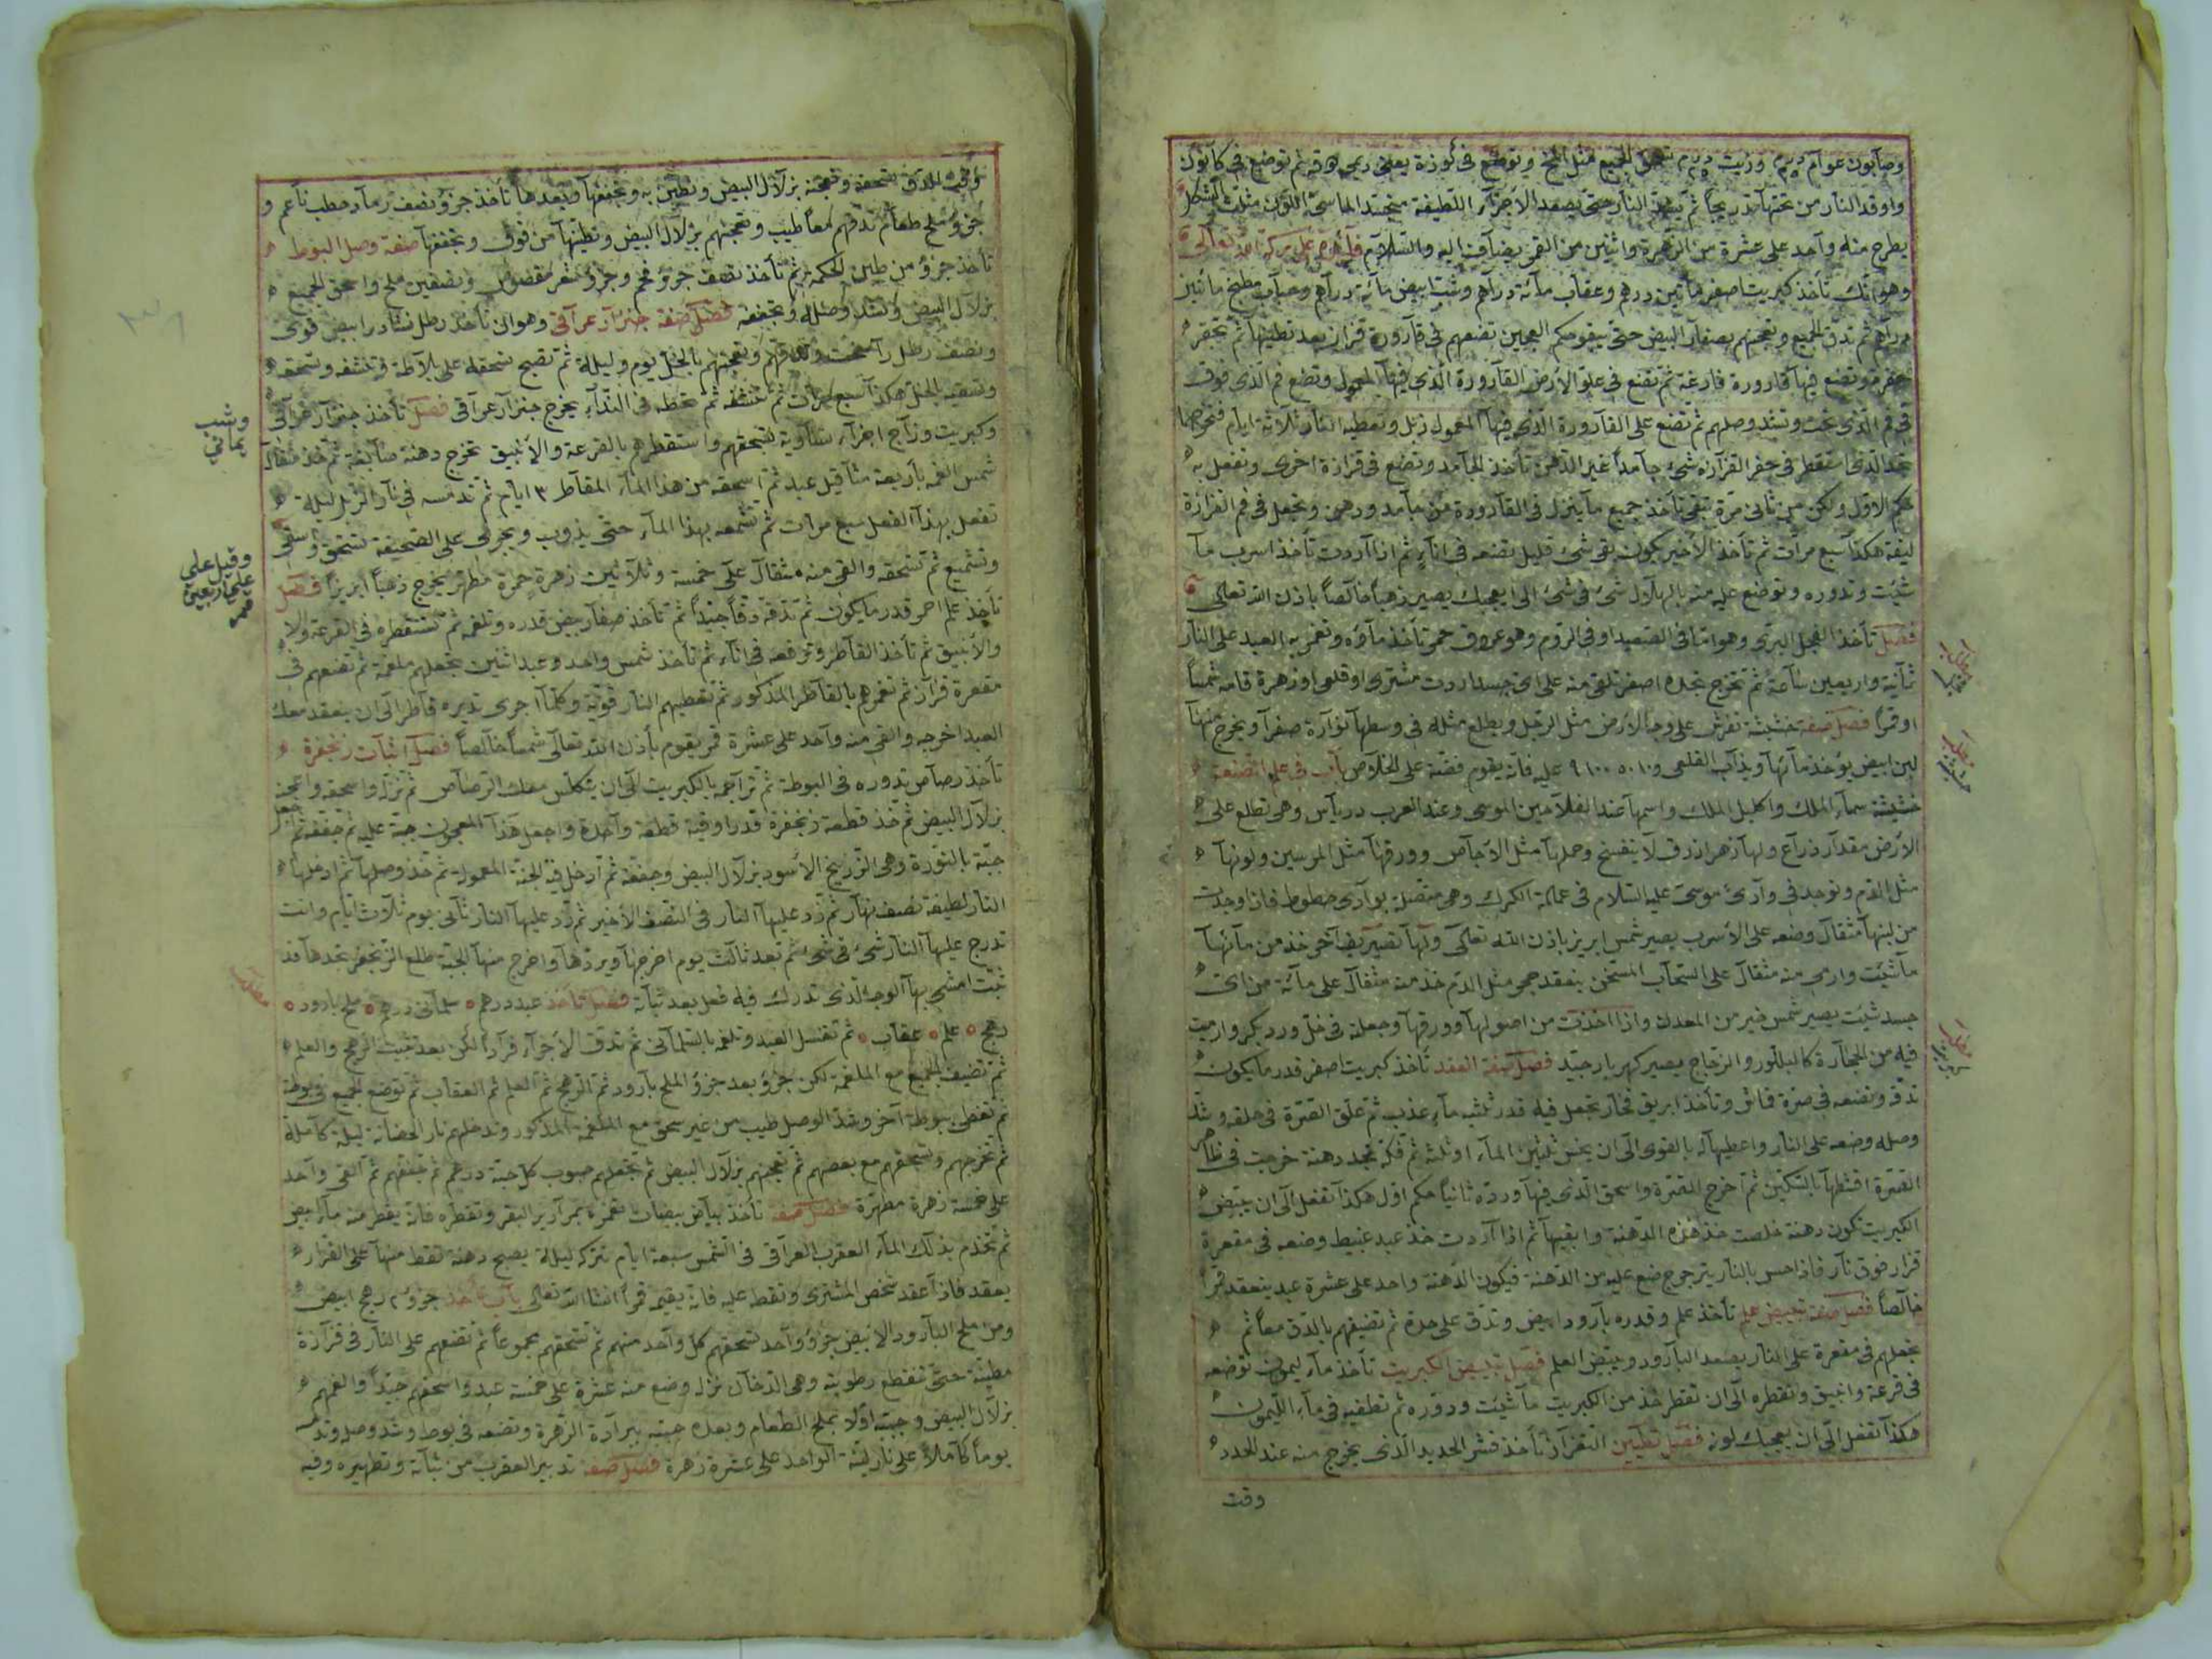 وصابون عوام وزيت الجميع مثل المخ وتوضع في كوزة يعني ثم توضع في كانون
واوقد النار من تحتها تدريجاً ثم النار حتى يصعد الأجزاء اللطيفة اللون مثلث الشكل
يطرح منه واحد على عشرة من الزهرة واثنين من القمر يضاف اليه والسلام فائدة على بركة الله تعالى
وهو انك تأخذ كبريت اصفر مأتين درهم وعقاب مائة درهم وشب ابيض مائة درهم مطبخ مأتين
درهم ثم تدق الجميع وتعجنهم بصفار البيض حتى يبقو حكم العجين تضعهم في قارورة قزاز بعد تطينها ثم تحفر
حفرة وتضع فيها قارورة فارغة ثم تضع في علو الأرض القارورة الذي فيها المعمول وتضع فم الذي فوق
في فم الذي تحت وتشد وصلهم ثم تضع على القارورة الذي فيها المعمول زبل وتعطيه النار ثلاثة ايام فتحرجها
تجد الذي استقطر في حفر القزازة شئ جامداً غير الدهن تأخذ الجامد وتضع في قزازة اخرى وتفعل به
حكم الاول ولكن من ثاني مرة تبقى تأخذ جميع ما ينزل في القارورة من جامد ودهن وتجعل في فم القزازة
ليفة هكذا سبع مرات ثم تأخذ الأخير يكون بقى شئ قليل تضعه في اناء ثم اذا اردت تأخذ اسرب ما
شئت وتدوره وتوضع عليه منه بالهلال شئ في شئ الى يعجبك يصير ذهباً خالصاً باذن الله تعالى
فصل تأخذ الفجل البري وهو اما في الصعيد او في الروم وهو عروق حمر تأخذ مآؤه وتغمر به العبد على النار
ثمانية واربعين ساعة ثم تخرج تجده اصفر تلقى منه على اي جسد اردت مشتري او قلعي او زهرة قامه شمساً
او قمراً فصل صفة خشيشة تفرش على وجه الأرض مثل الرجل ويطلع مثله في وسطها نوارة صفرا ويخرج منها
لبن ابيض يؤخذ مآئها ويذاب القلعي و عليه فانه يقوم فضة على الخلاص باب في علم الصنعة
خشيشة سماء الملك واكليل الملك واسمها عند الفلاحين الموسى وعند العرب درياس وهي تطلع على
الأرض مقدار ذراع ولها زهر ازرق لا ينفسخ وحملها مثل الاجاص وورقها مثل المرسين ولونها
مثل الدم وتوجد في وادي موسى عليه السلام في عمالة الكرك وهي متصلة بوادي حطوط فاذا وجدت
من لبنها مثقال وضعه على الأسرب يصير شمس ابريز باذن الله تعالى ولها تفسير خذ من مآئها
ما شئت وارمي منه مثقال على السحاب المسخن ينعقد حجر مثل الدم خذ منه مثقال على مائة من اي
جسد شئت يصير شمس خير من المعدن واذا اخذت من اصولها وورقها وجعلته في خل ورد بكر وارميت
فيه من الحجارة كالبلور والزجاج يصير كهربار جيد فصل صفة العقد تأخذ كبريت اصفر قدر ما يكون
تدقه وتضعه في صرة قماش وتأخذ ابريق فخار تجعل فيه قدر ثلثيه ماء عذب ثم علق الصرة في حلقه وشد
وصله وضعه على النار واعطيها له بالقوي الى ان يخس ثلثين الماء او ثلثه ثم فكه تجد دهنة خرجت في ظاهر
الصرة اقشطها بالسكين ثم اخرج الصرة واسحق الذي فيها وردّه ثانياً حكم اول هكذا تفعل الى ان يبيض
الكبريت تكون دهنة خلصت خذ هذه الدهنة وابقيها ثم اذا اردت خذ عبد عبيط وضعه في مقعرة
قزاز فوق نار فاذا احس بالنار يترجرج ضع عليه من الدهنة فيكون الدهنة واحد على عشرة عبد ينعقد قمراً
خالصاً فصل صفة تبييض علم تأخذ علم وقدره بارود ابيض وتدق على حدة ثم تضيفهم بالدق معاً ثم
تجعلهم في مقعرة على النار يصعد البارود ويبيض العلم فصل تبييض الكبريت تأخذ ماء ليمون توضعه
في قرعة وانبيق وتقطره الى ان تقطر خذ من الكبريت ما شئت ودوره ثم تطفيه في ماء الليمون
هكذا تفعل الى ان يعجبك لونه فصل تطيين القزاز تأخذ قشر الحديد الذي يخرج منه عند الحدد
وقت
وقت الدق تسحقه وتعجنه بزلال البيض وتطين به وتجففها وبعدها تأخذ جزؤ ونصف رماد حطب ناعم و
جزؤ ملح طعام تدقهم معاً طيب وتعجنهم بزلال البيض وتطينها من فوق وتجففها صفة وصل البوط
تأخذ جزؤ من طين الحكمة ثم تأخذ نصف جزؤ فحم وجزؤ شعر مقصوص ونصفين ملح واسحق الجميع
بزلال البيض وتشد وصله وتجففه فصل صفة جنزار عراقي وهو ان تأخذ رطل نشادر ابيض قوي
ونصف رطل راسخت وتدقهم وتعجنهم بالخل يوم وليلة ثم تصبح تسحقه على بلاطة وتنشفه وتسحقه
وتسقيه بالخل هكذا سبع مرات ثم تنشفه ثم تحطه في النداء يخرج جنزار عراقي فصل تأخذ جنزار عراقي
وكبريت وزاج اجزاء متساوية تسحقهم واستقطرهم بالقرعة والأنبيق تخرج دهنة صابغة ثم خذ مثقال
شمس الغمه باربعة مثاقيل عبد ثم اسحقه من هذا الماء المقاطر ٣ ايام ثم تدمسه في نار الزبل ليلة
تفعل بهذا الفعل سبع مرات ثم تشمعه بهذا الماء حتى يذوب ويجري على الصحيفة تسحق واسقى
وتشميع ثم تسحقه والقى منه مثقال على خمسة وثلاثين زهرة حمرة مطهر يخرج ذهباً ابريزاً فصل
تأخذ علم احمر قدر ما يكون ثم تدقه دقاً جيداً ثم تأخذ صفار بيض قدره وتلغمه ثم تستقطره في القرعة ولا
والأنبيق ثم تأخذ القاطر وترفعه في اناء ثم تأخذ شمس واحد وعبد اثنين تجعلهم ملغمة ثم تضعهم في
مقعرة قزاز ثم تغمرهم بالقاطر المذكور ثم تعطيهم النار قوية وكلما اجرى تديره قاطر الى ان ينعقد معك
العبد اخرجه والقى منه واحد على عشرة قمر يقوم بأذن الله تعالى شمساً خالصاً فصل اثبات زنجفرة
تأخذ رصاص تدوره في البوطة ثم تراجمه بالكبريت الى ان يتكلس معك الرصاص ثم نزله واسحقه واعجنه
بزلال البيض ثم خذ قطعة زنجفرة قدر اوقية قطعة واحدة واجعل هذا المعجون جبة عليه ثم جففه ثم اجعل
جبة بالنورة وهي الزرنيخ الأسود بزلال البيض وجففه ثم ادخل فيه الجنة المعمولة ثم خذ وصلها ثم ادخلها
النار لطيفة نصف نهار ثم زد عليها النار في النصف الأخير ثم زد عليها النار ثاني يوم ثلاث ايام وانت
تدرج عليها النار شئ في شئ ثم تبعد ثالث يوم اخرجها وبردها واخرج منها الجبة طلع الزنجفر تجدها قد
ثبت امشي بها الوجه الذي تدرك فيه فعل بعد ثباته فصل تأخذ عبد درهم سلماني درهم ملح بارود
رهج علم عقاب ثم تغسل العبد وتلغمه بالسلماني ثم تدق الأجزاء فرادا لكن بعد تثبيت الرهج والعلم
ثم تضيف الجميع مع الملغمة لكن جزؤ بعد جزؤ الملح بارود ثم الرهج ثم العلم ثم العقاب ثم توضع الجميع في بوطة
ثم تغطى ببوطة آخر وشد الوصل طيب من غير سحق مع الملغمة المذكور وتدخلهم نار الحضانة ليلة كاملة
ثم تخرجهم وتسحقهم مع بعضهم ثم تعجنهم بزلال البيض ثم تجعلهم حبوب كل حبة درهم ثم جففهم ثم القى واحد
على خمسة زهرة مطهرة فصل صفة تأخذ بياض بيضات تغمره بمراير البقر وتقطره فانه يقطر منه ماء ابيض
ثم تخدم بذلك الماء العقرب العراقي في الشمس سبعة ايام تتركه ليلة يصبح دهنة تقطر منها على الفرار
يعقد فاذا عقد شخص المشتري ونقط عليه فانه يقيمه قمراً انشا الله تعالى باب تأخذ جزؤ رهج ابيض
ومن ملح البارود الابيض جزؤ واحد تسحقهم كل واحد منهم ثم تسحقهم مجموعاً ثم تضعهم على النار في قزازة
مطينة حتى تنقطع رطوبته وهي الدخان نزله وضع منه عشرة على خمسة عبد واسحقهم جيداً والغمهم
بزلال البيض وجبته اولا بملح الطعام وبعده جبته ببرادة الزهرة وتضعه في بوط وشد وصله وتدسه
يوماً كاملاً على نار لينة الواحد على عشرة زهرة فصل صفة تدبير العقرب من ثباته وتطهيره وفيه
وشب
يماني
وقيل على
اربعين